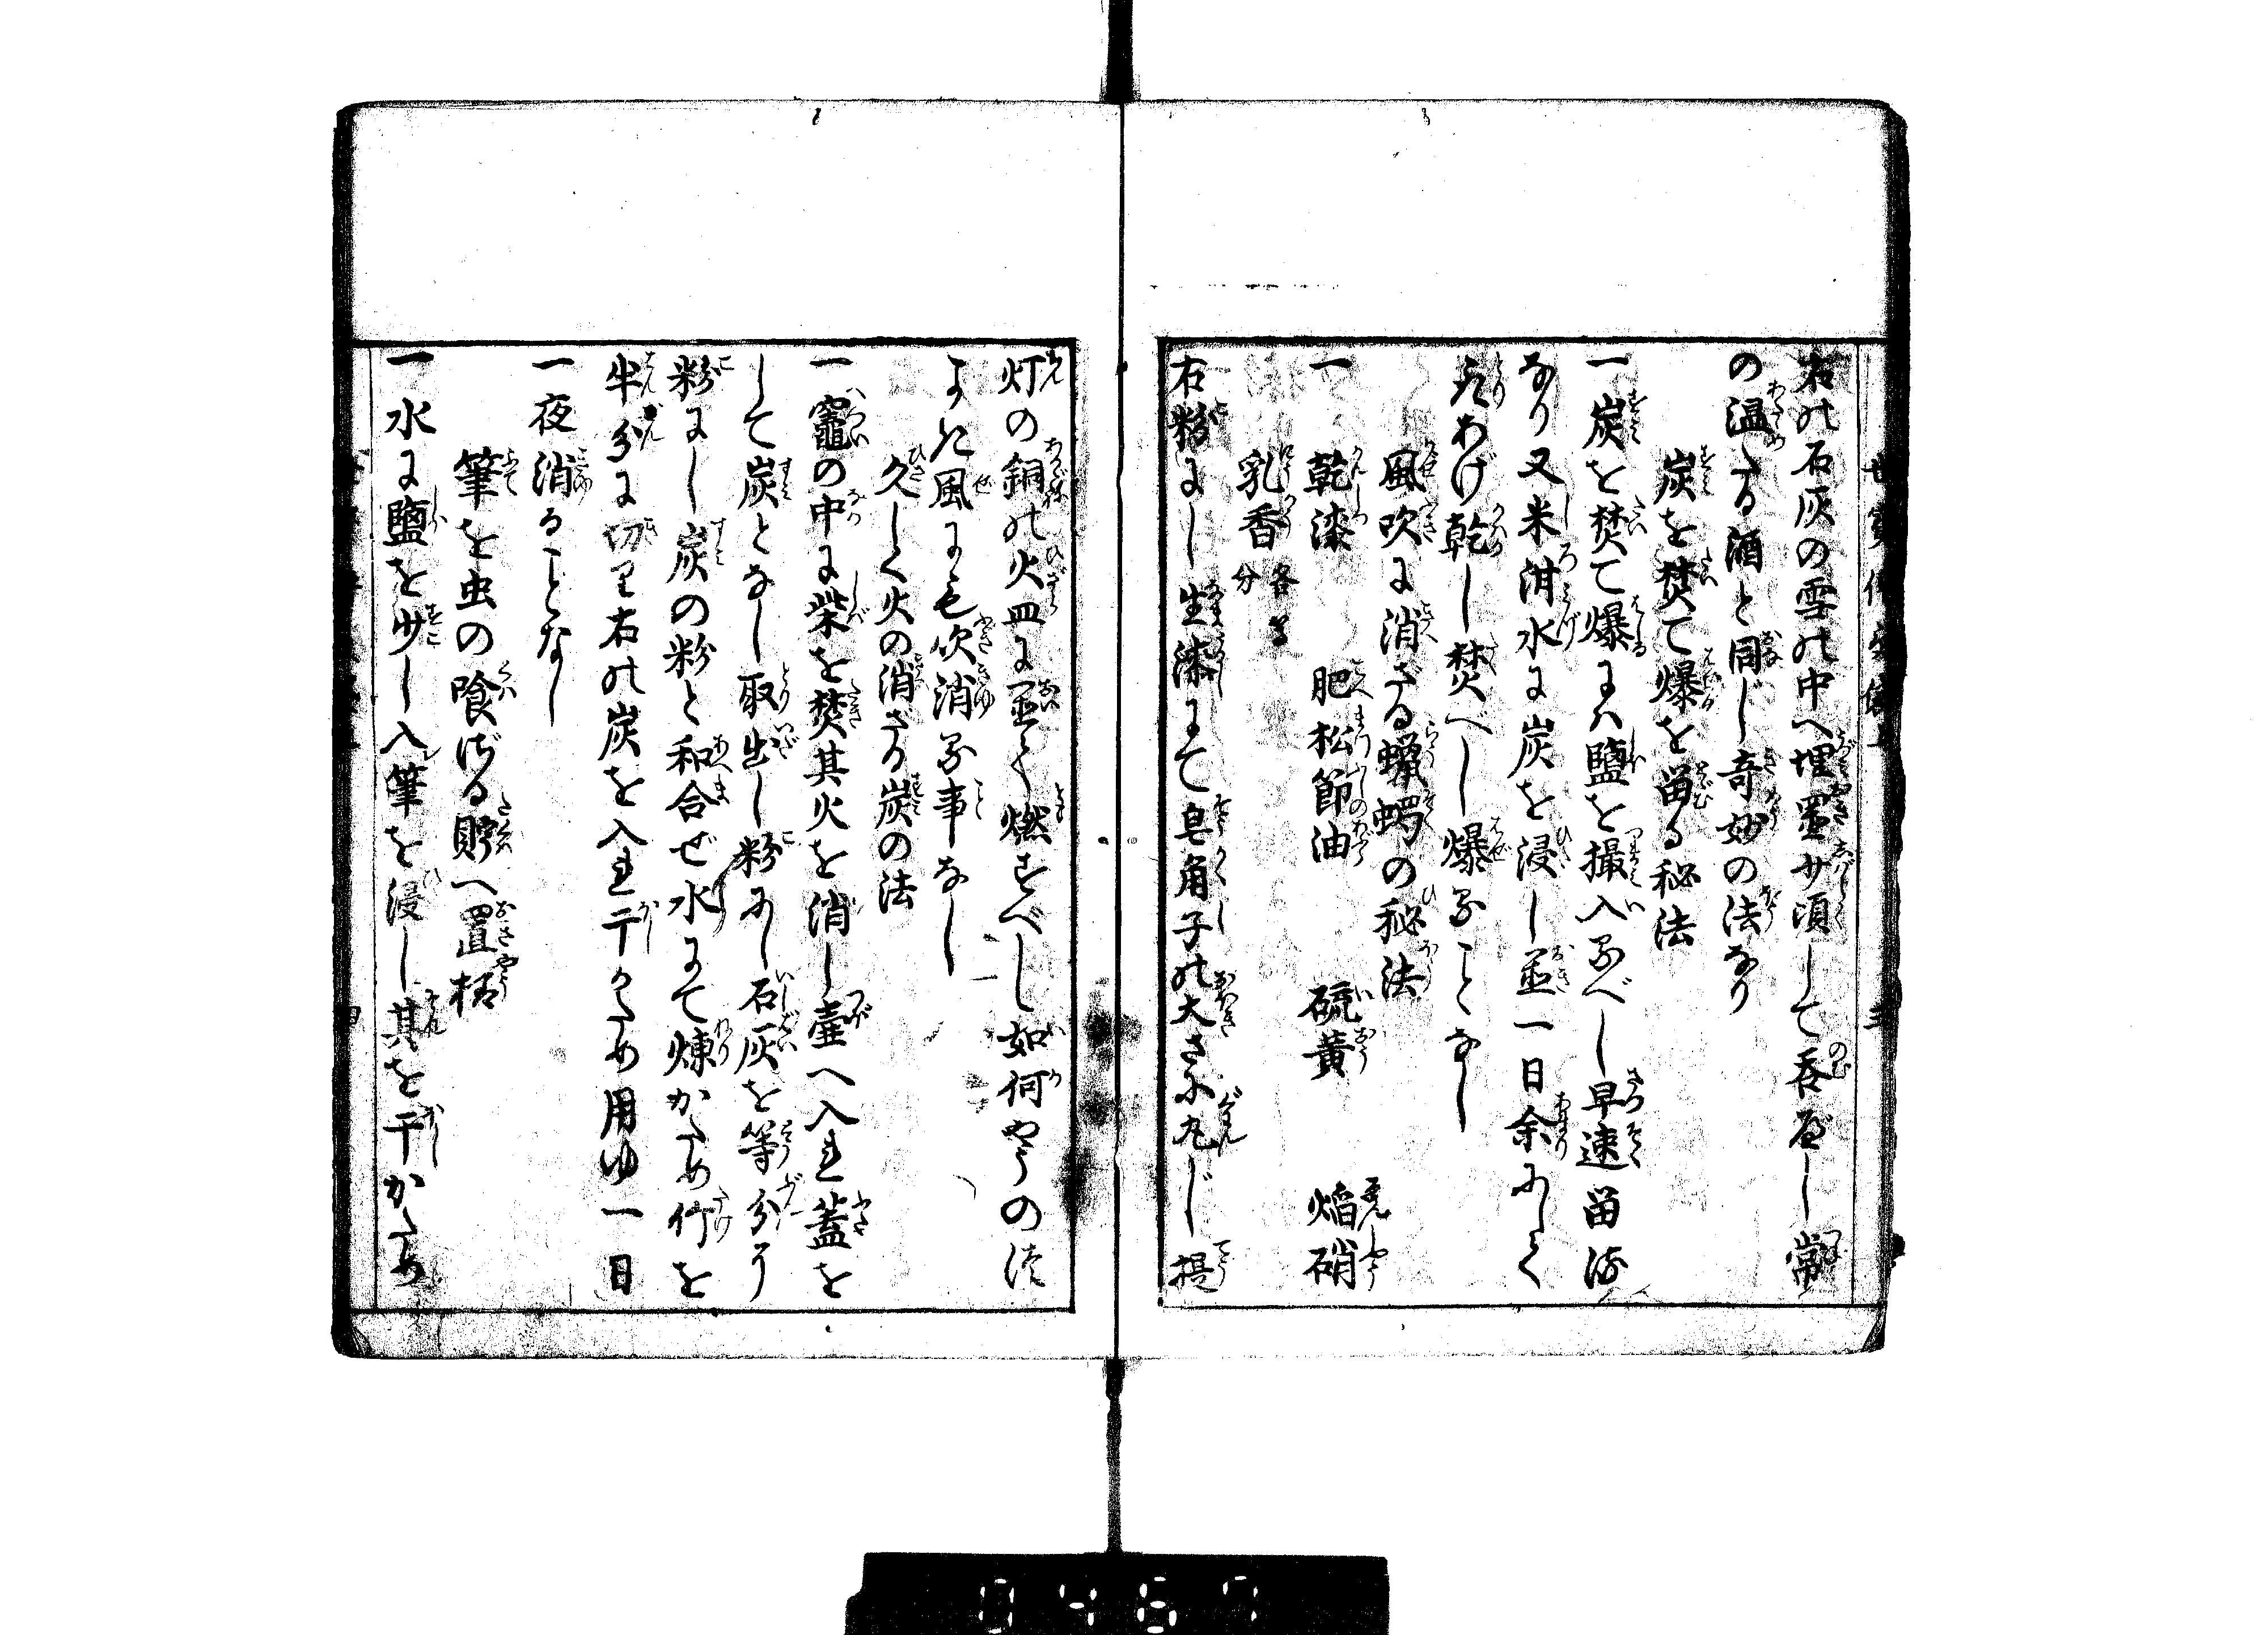 右の石灰の雪の中へ埋置少頃して呑べし常
の温たる酒と同じ奇妙の法なり
炭を焚て爆を留る秘法
一炭を焚て爆るには鹽を撮入るべし早速留る
なり又米泔水に炭を浸し置一日余にして
取あげ乾し焚べし爆ることなし
風吹に消ざる蝋燭の秘法
一 乾漆 肥松節油 硫黄 焔硝
乳香 各等分
右粉にし生漆にて皂角子の大さに丸じ提
灯の銅の火皿に置て燃すべし如何やうの
よき風にも吹消る事なし
久しく火の消ざる炭の法
一竈の中に柴を焚其火を消し壷へ入れ蓋を
して炭となし取出し粉にし石灰を等分
粉にし炭の粉と和合せ水にて煉かため竹を
半分に切り右の炭を入れ干かため用ゆ一日
一夜消ることなし
筆を虫の喰ざる貯へ置様
一水に鹽を少し入筆を浸し其を干かため